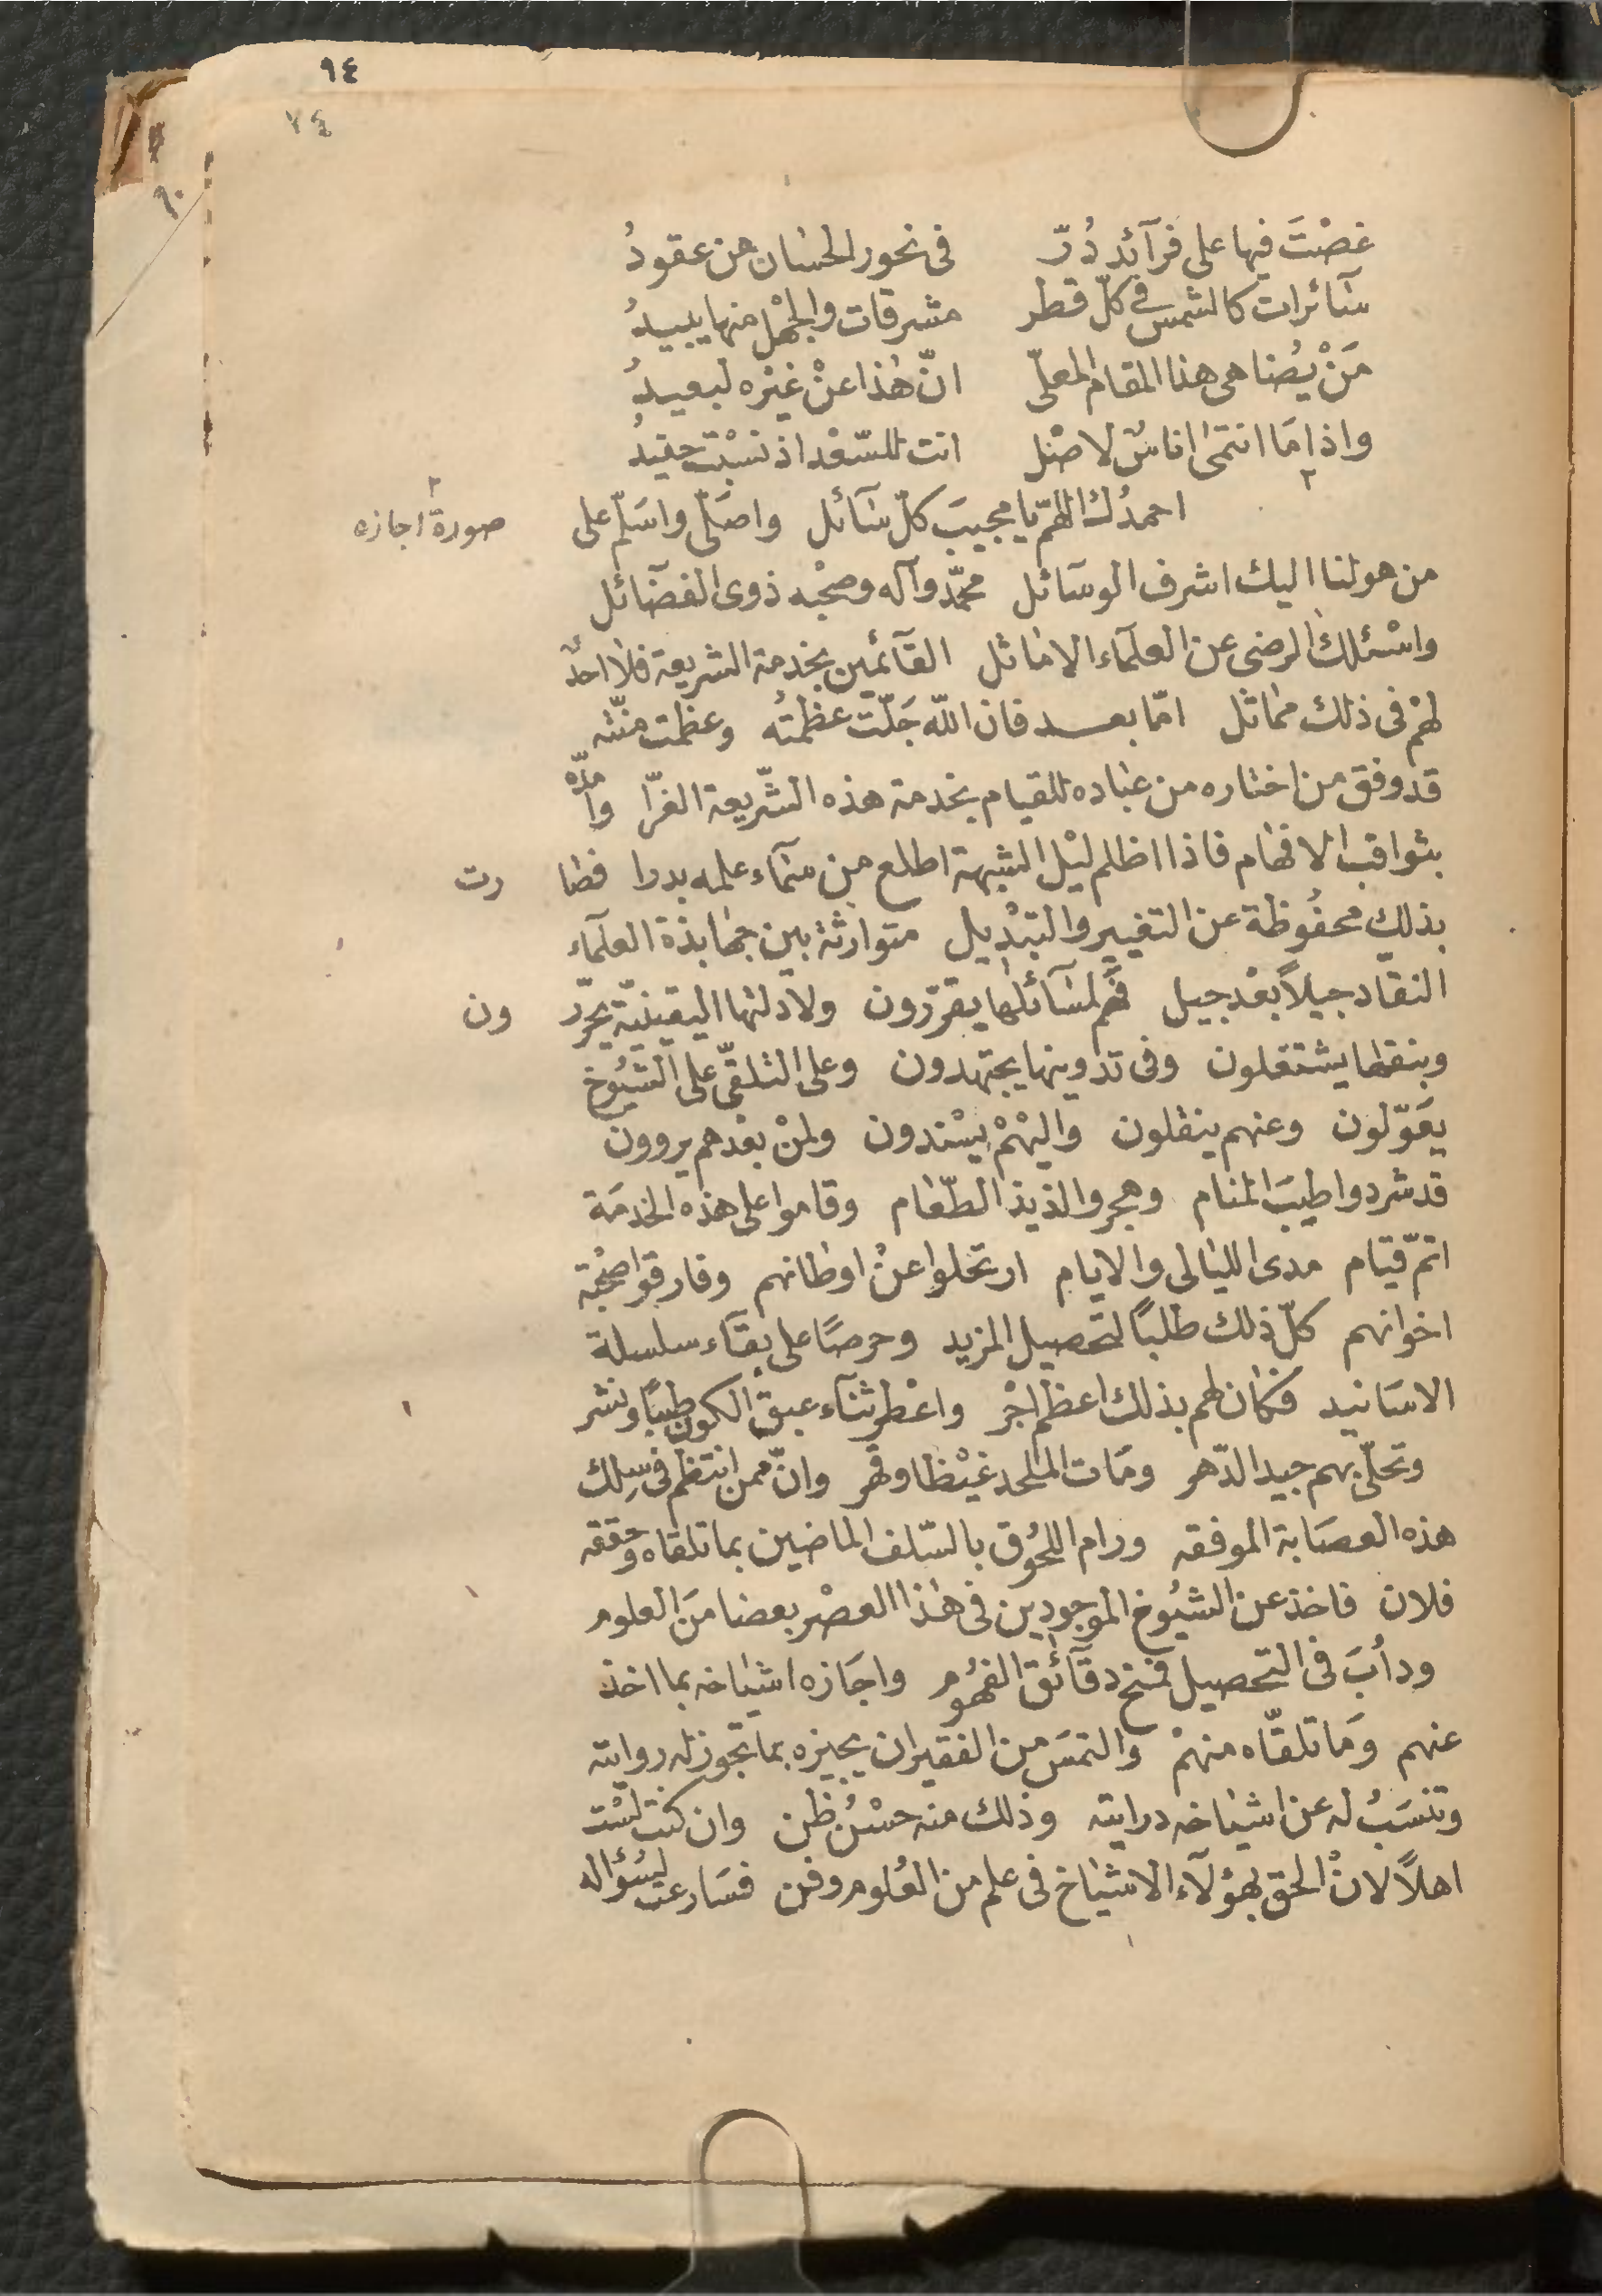 ٩٤
٧٤
٩٠
غصْتَ فيها على فرآئد دُرّ في نحور الحسان هن عقودُ
سٓائرات كالشمس في كلّ قطر مشرقات والجهْل منها يبيدُ
مَنْ يُضاهى هذا المقام المعلّى انّ هٰذا عنْ غيْره لبعيدُ
واذا مَا انتمى اناسٌ لاصْل انت للسّعْد اذ نسْبت حفيدُ
احمدُك اللهمّ يا مجيبَ كلّ سٓائل واصَلّى واسَلّم على
صورة اجازه
من هو لنا اليك اشرف الوسَائل محمّد وآله وصحْبه ذوى الفضٓائل
واسْئلك الرضى عن العلمٓاء الاماثل القٓائمين بخدمة الشريعة فلا احدٌ
لهمْ فى ذلك مماثل امّا بعد فان اللّه جَلّت عظمتُه وعظمت منّته
قد وفق من اختاره من عباده للقيام بخدمة هذه الشّريعة الغرّا وامدّه
بثواقب الافهام فاذا اظلم ليْل الشبهة اطلع من سمٓاء علمه بدرا فصارت
بذلك محفُوظة عن التغيير والتبْديل متوارثة بين جهابذة العلمٓاء
النقاد جيلاً بعْد جيل فهُم لمسٓائلها يقرّرون ولادلتها اليقينيّة يحرّرون
وبنقلها يشتغلون وفى تدوينها يجتهدون وعلى التلقّى على الشيُوخ
يعَوّلون وعنهم ينقلون واليْهمْ يسْندون ولمنْ بعْدهم يروون
قد شردوا طيبَ المنام وهجروا لذيذ الطّعام وقاموا على هذه الخدمَة
اتمّ قيام مدى الليالى والايام ارتحلوا عنْ اوطانهم وفارقوا صحْبة
اخوانهم كلّ ذلك طلبًا لتحصيل المزيد وحرصًا على بقٓاء سلسلة
الاسَانيد فكان لهم بذلك اعظم اجْر واعْطر ثنٓاء عبق الكون طيبًا ونشر
وتحلّى بهم جيد الدّهر ومَات الملحد غيْظا وقهر وانّ ممن انتظم فى سِلك
هذه العصَابة الموفقه ورام اللحُوق بالسّلف الماضين بما تلقاه وحققه
فلان فاخذ عن الشيُوخ الموجودين فى هٰذا العصْر بعضا منَ العلوم
ودأبَ فى التحصيل فمنح دقٓائق الفهُوم واجَازه اشياخه بما اخذ
عنهم وَما تلقّاه منهمْ والتمسَ من الفقير ان يجيزه بما تجوز له روايته
وتنسَبُ له عن اشياخه درايته وذلك منه حسْنُ ظن وان كنت لسْت
اهلاً لانْ الحق بهؤلآء الاشياخ فى علم من العُلوم وفن فسَارعت لسُؤاله